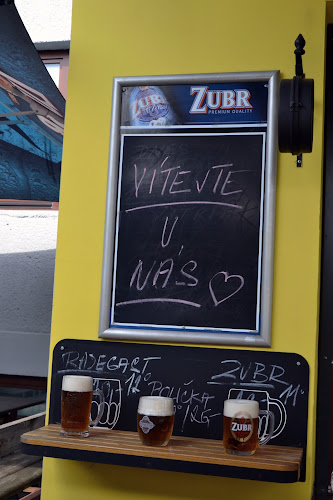 ZUBR
ZUBR
PREMIUM QUALITY
VÍTEJTE
U
NÁS
RADEGAST
12°
POLIČKA
ZUBR
11°
ZUBR